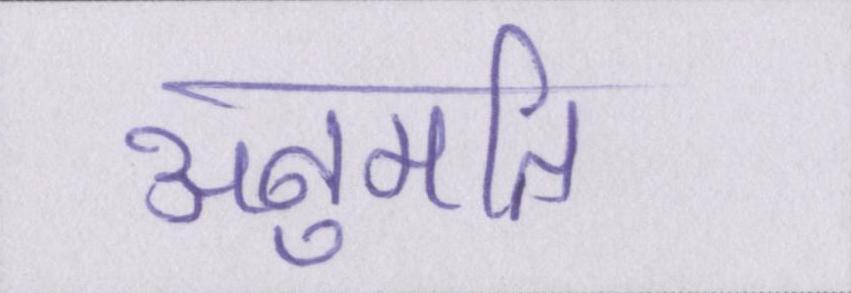 अनुमति